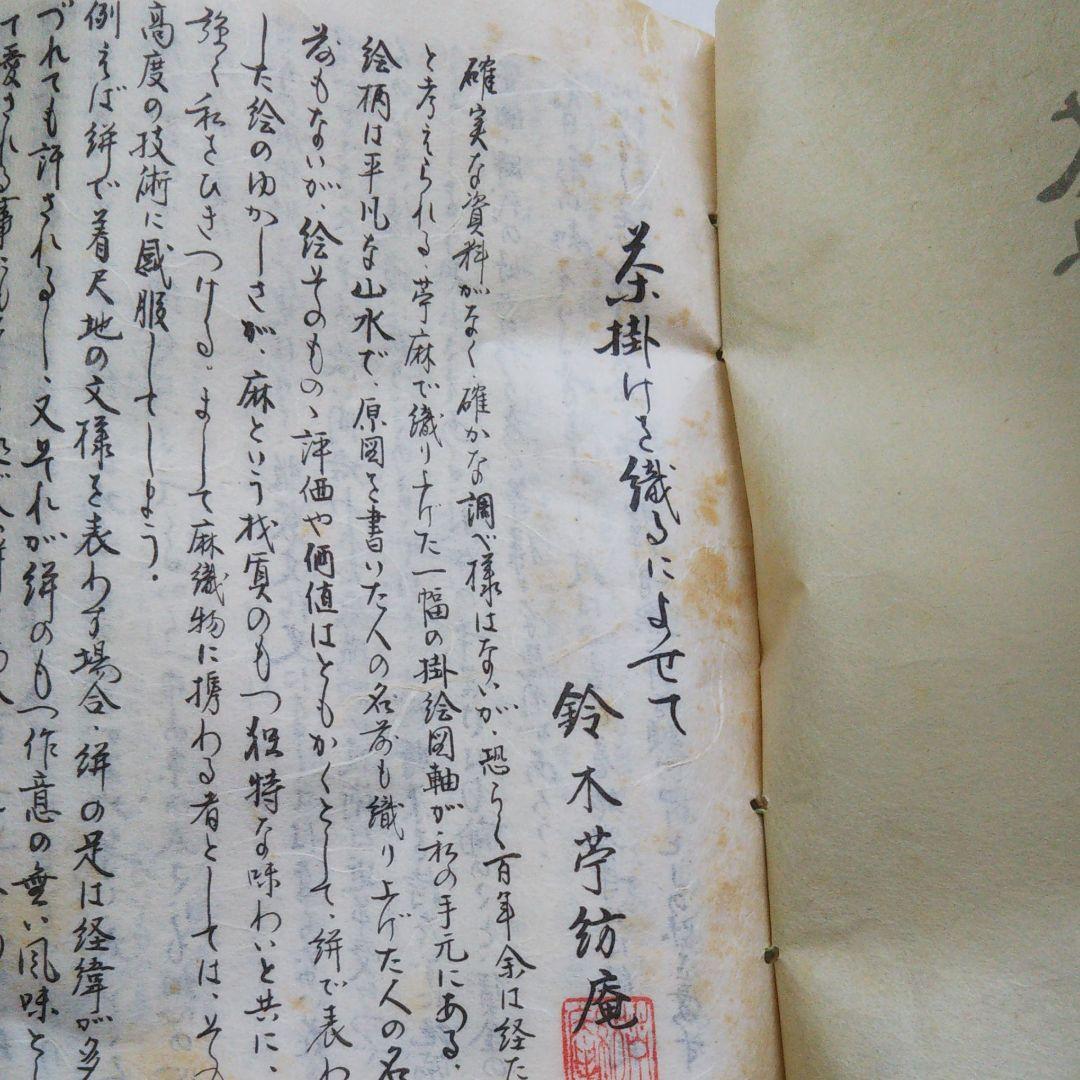 茶掛けを織るによせて
鈴木苧紡庵
確実な資料がなく確かな調べ様はないが、恐らく百年余は経た
と考えられる、苧麻で織り上げた一幅の掛絵図軸が私の手元にある。
絵柄は平凡な山水で、原図を書いた人の名前も織り上げた人の名
前もないが、絵そのもの、評価や価値はともかくとして、絣で表わ
した絵のゆかしさが、麻という材質のもつ独特な味わいと共に、
強く私をひきつける。まして麻織物に携わる者としては、その
高度の技術に感服してしまう.
例えば絣で着尺地の文様を表わす場合、絣の足は経緯が多
づれても許されるし、又それが絣のもつ作意の無い風味と
て愛される事